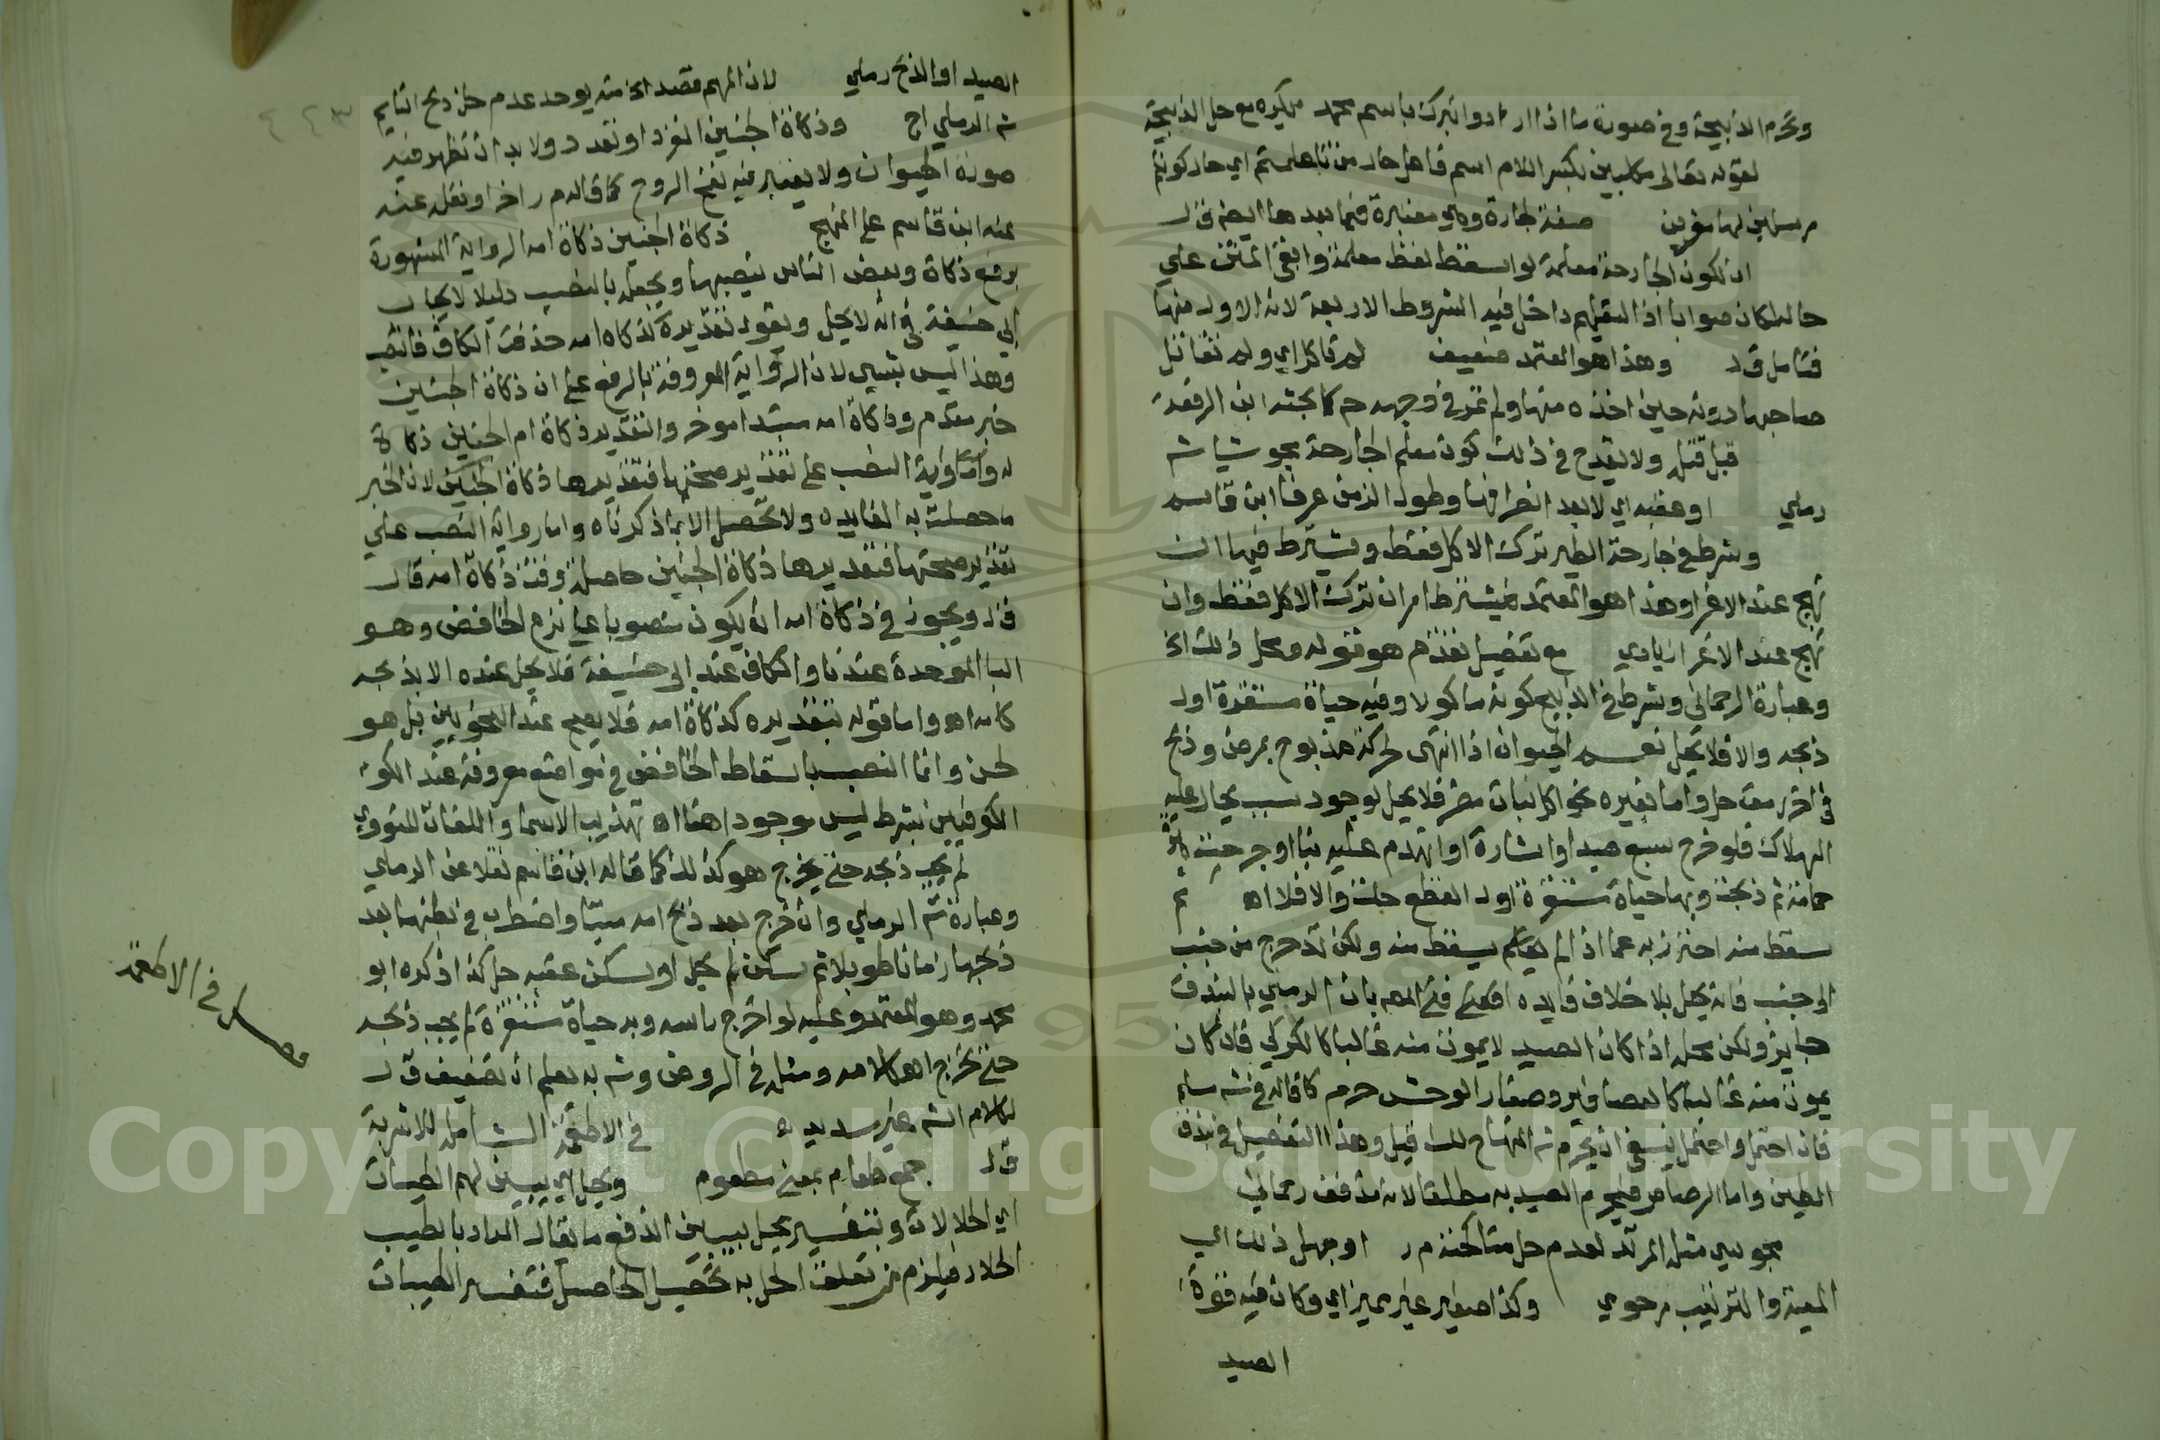 وتحرم الذبيحة وفي صورة ما اذا ارادوا التبرك باسم محمد فيكره مع حل الذبيحة
لقوله تعالى مكلبين بكسر اللام اسم فاعل حال من تا علمتم اي حال كونكم
مرسلين لها صفة لجارة وهي معتبرة فيما بعدها ايضا ق ل
ان تكون الجارحة معلمة لو اسقط لفظ معلمة وابقى المتن على
حاله لكان صوابا اذ التعليم داخل فيه الشروط الاربعة لانه الاول منها
فتامل ق ل وهذا هو المعتمد ضعيف لم تاكل اي ولم تقاتل
صاحبها دونه حين اخذه منها ولم تمر في وجهه كما بحثه ابن الرفعة
قبل قتل ولا يقدح في ذلك كون معلم الجارحة مجوسيا شم
رملي او عقبه اي لا بعد انصرافها وطول الزمن عرفا ابن قاسم
وشرط في جارحة الطير ترك الاكل فقط ويشترط فيها ان
تهيج عند الاغرا وهذا هو المعتمد فيشترط امران ترك الاكل فقط وان
تهيج عند الاغرا زيادي مع تفصيل تقدم هو قوله ومحل ذلك الخ
وعبارة الرحماني وشرط في الذبيح كونه ماكولا وفيه حياة مستقرة اول
ذبحه والا فلا يحل نعم الحيوان اذا انتهى لحركة مذبوح بمرض وذبح
في اخر رمق حل واما بغيره نحو اكل نبات مضر فلا يحل لوجود سبب يحال عليه
الهلاك فلو جرح سبع صيدا او شاة او انهدم عليه بنا او جرحت هرة
حمامة ثم ذبحت وبها حياة مستقرة اول القطع حلت والا فلا اه ثم
سقط منه احترز به عما اذا لم يسقط منه ولكن تدحرج من جنب
الى جنب فانه يحل بلا خلاف فايده افتى بان الرمي بالبندق
جايز ولكن محل اذا كان الصيد لا يموت منه غالبا كالكركي فان كان
يموت منه غالبا كالعصافير وصغار الوحش حرم كما قاله في شم سلم
فان احتمل واحتمل ينبغي ان يحرم شم المنهاج وهذا التفصيل في بندق
الطين واما الرصاص فيحرم الصيد به مطلقا لانه مذفف رحماني
مجوسي مثل المرتد لعدم حل مناكحته م ر او جهل ذلك اي
المعية والترتيب مرحومي وكذا صغير غير مميز اي وكان فيه قوة
الصيد
الصيد او الذبح رملي لان المهم قصد الخ منه يوخذ عدم حل ذبح النايم
شم الرملي اج وذكاة الجنين انفرد او تعدد ولا بد ان تظهر فيه
صورة الحيوان ولا يعتبر فيه نفخ الروح كما قاله م ر اخرا ونقله عنه
عنه ابن قاسم على المنهج ذكاة الجنين ذكاة امه الرواية المشهورة
برفع ذكاة وبعض الناس ينصبها ويجعل بالنصب دليلا لا يحاب
ابي حنيفة في انه لا يحل ويقول تقديره كذكاة امه حذفت الكاف فانتصب
وهذا ليس بشي لان الرواية المعروفة بالرفع على ان ذكاة الجنين
خبر مقدم وذكاة امه مبتدا موخر والتقدير ذكاة ام الجنين ذكاة
له واما رواية النصب على تقدير صحتها فتقديرها ذكاة الجنين لان الخبر
ما حصلت به الفايده ولا تحصل الا بما ذكرناه واما رواية النصب على
تقدير صحتها فتقديرها ذكاة الجنين حاصلة وقت ذكاة امه قال
ق ل ويجوز في ذكاة امه ان يكون منصوبا على نزع الخافض وهو
البا الموحدة عندنا والكاف عند ابي حنيفة فلا يحل عنده الا بذبحه
كامه اه واما قوله بتقديره كذكاة امه فلا يصح عند النحويين بل هو
لحن وانما النصب باسقاط الخافض في مواضع معروفة عند الكو
الكوفيين بشرط ليس موجودا هنا اه تهذيب الاسما واللغات للنووي
لم يجب ذبحه حتى يخرج هو كذلك كما قاله ابن قاسم نقلا عن الرملي
وعبارة شم الرملي وان خرج بعد ذبح امه ميتا واضطرب في بطنها بعد
ذبحها زمانا طويلا ثم سكن لم يحل او سكن عقبه حل كذا ذكره ابو
محمد وهو المعتمد وعليه لو اخرج راسه وبه حياة مستقرة لم يجب ذبحه
حتى يخرج اه كلامه ومثله في الروض وشم به يعلم ان تضعيف ق ل
لكلام الشم غير سديد ه في الاطعمة الشامل للاشربة
ق ل جمع طعام بمعنى مطعوم ويحل اي يبين لهم الطيبات
اي الحلالات وبتفسير يحل يبين اندفع ما يقال المراد بالطيب
الحلال فيلزم من تعلق الحل به تحصيل الحاصل فتفسير الطيبات
فصل في الاطعمة
٤٢٣
Copyright © King Saud University